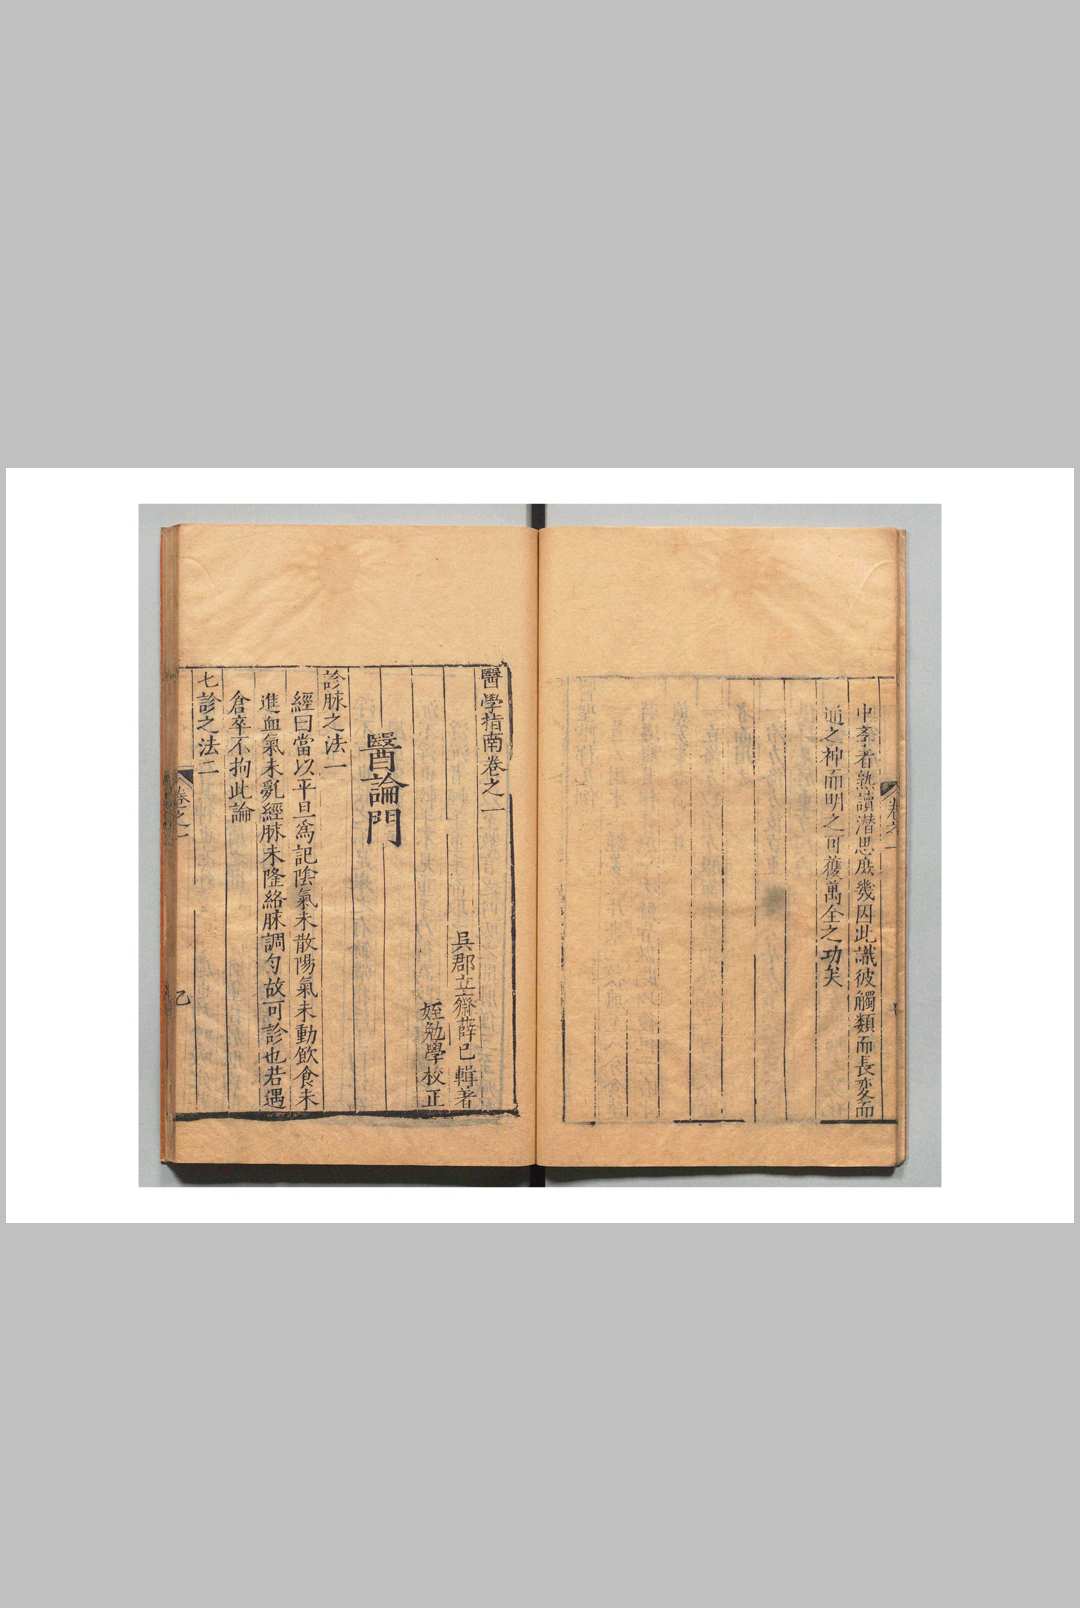 中㪯者熟讀潜思庶幾因此識彼觸類而長変而
通之神而明之可獲萬全之功矣
卷之一
醫學指南卷之一
吳郡立齋薛己輯著
姪勉學校正
醫論門
診脉之法一
經曰當以平旦爲記陰氣未散陽氣未動飲食未
進血氣未亂經脉未隆絡脉調勻故可診也若遇
倉卒不拘此論
七診之法二
卷之一
乙